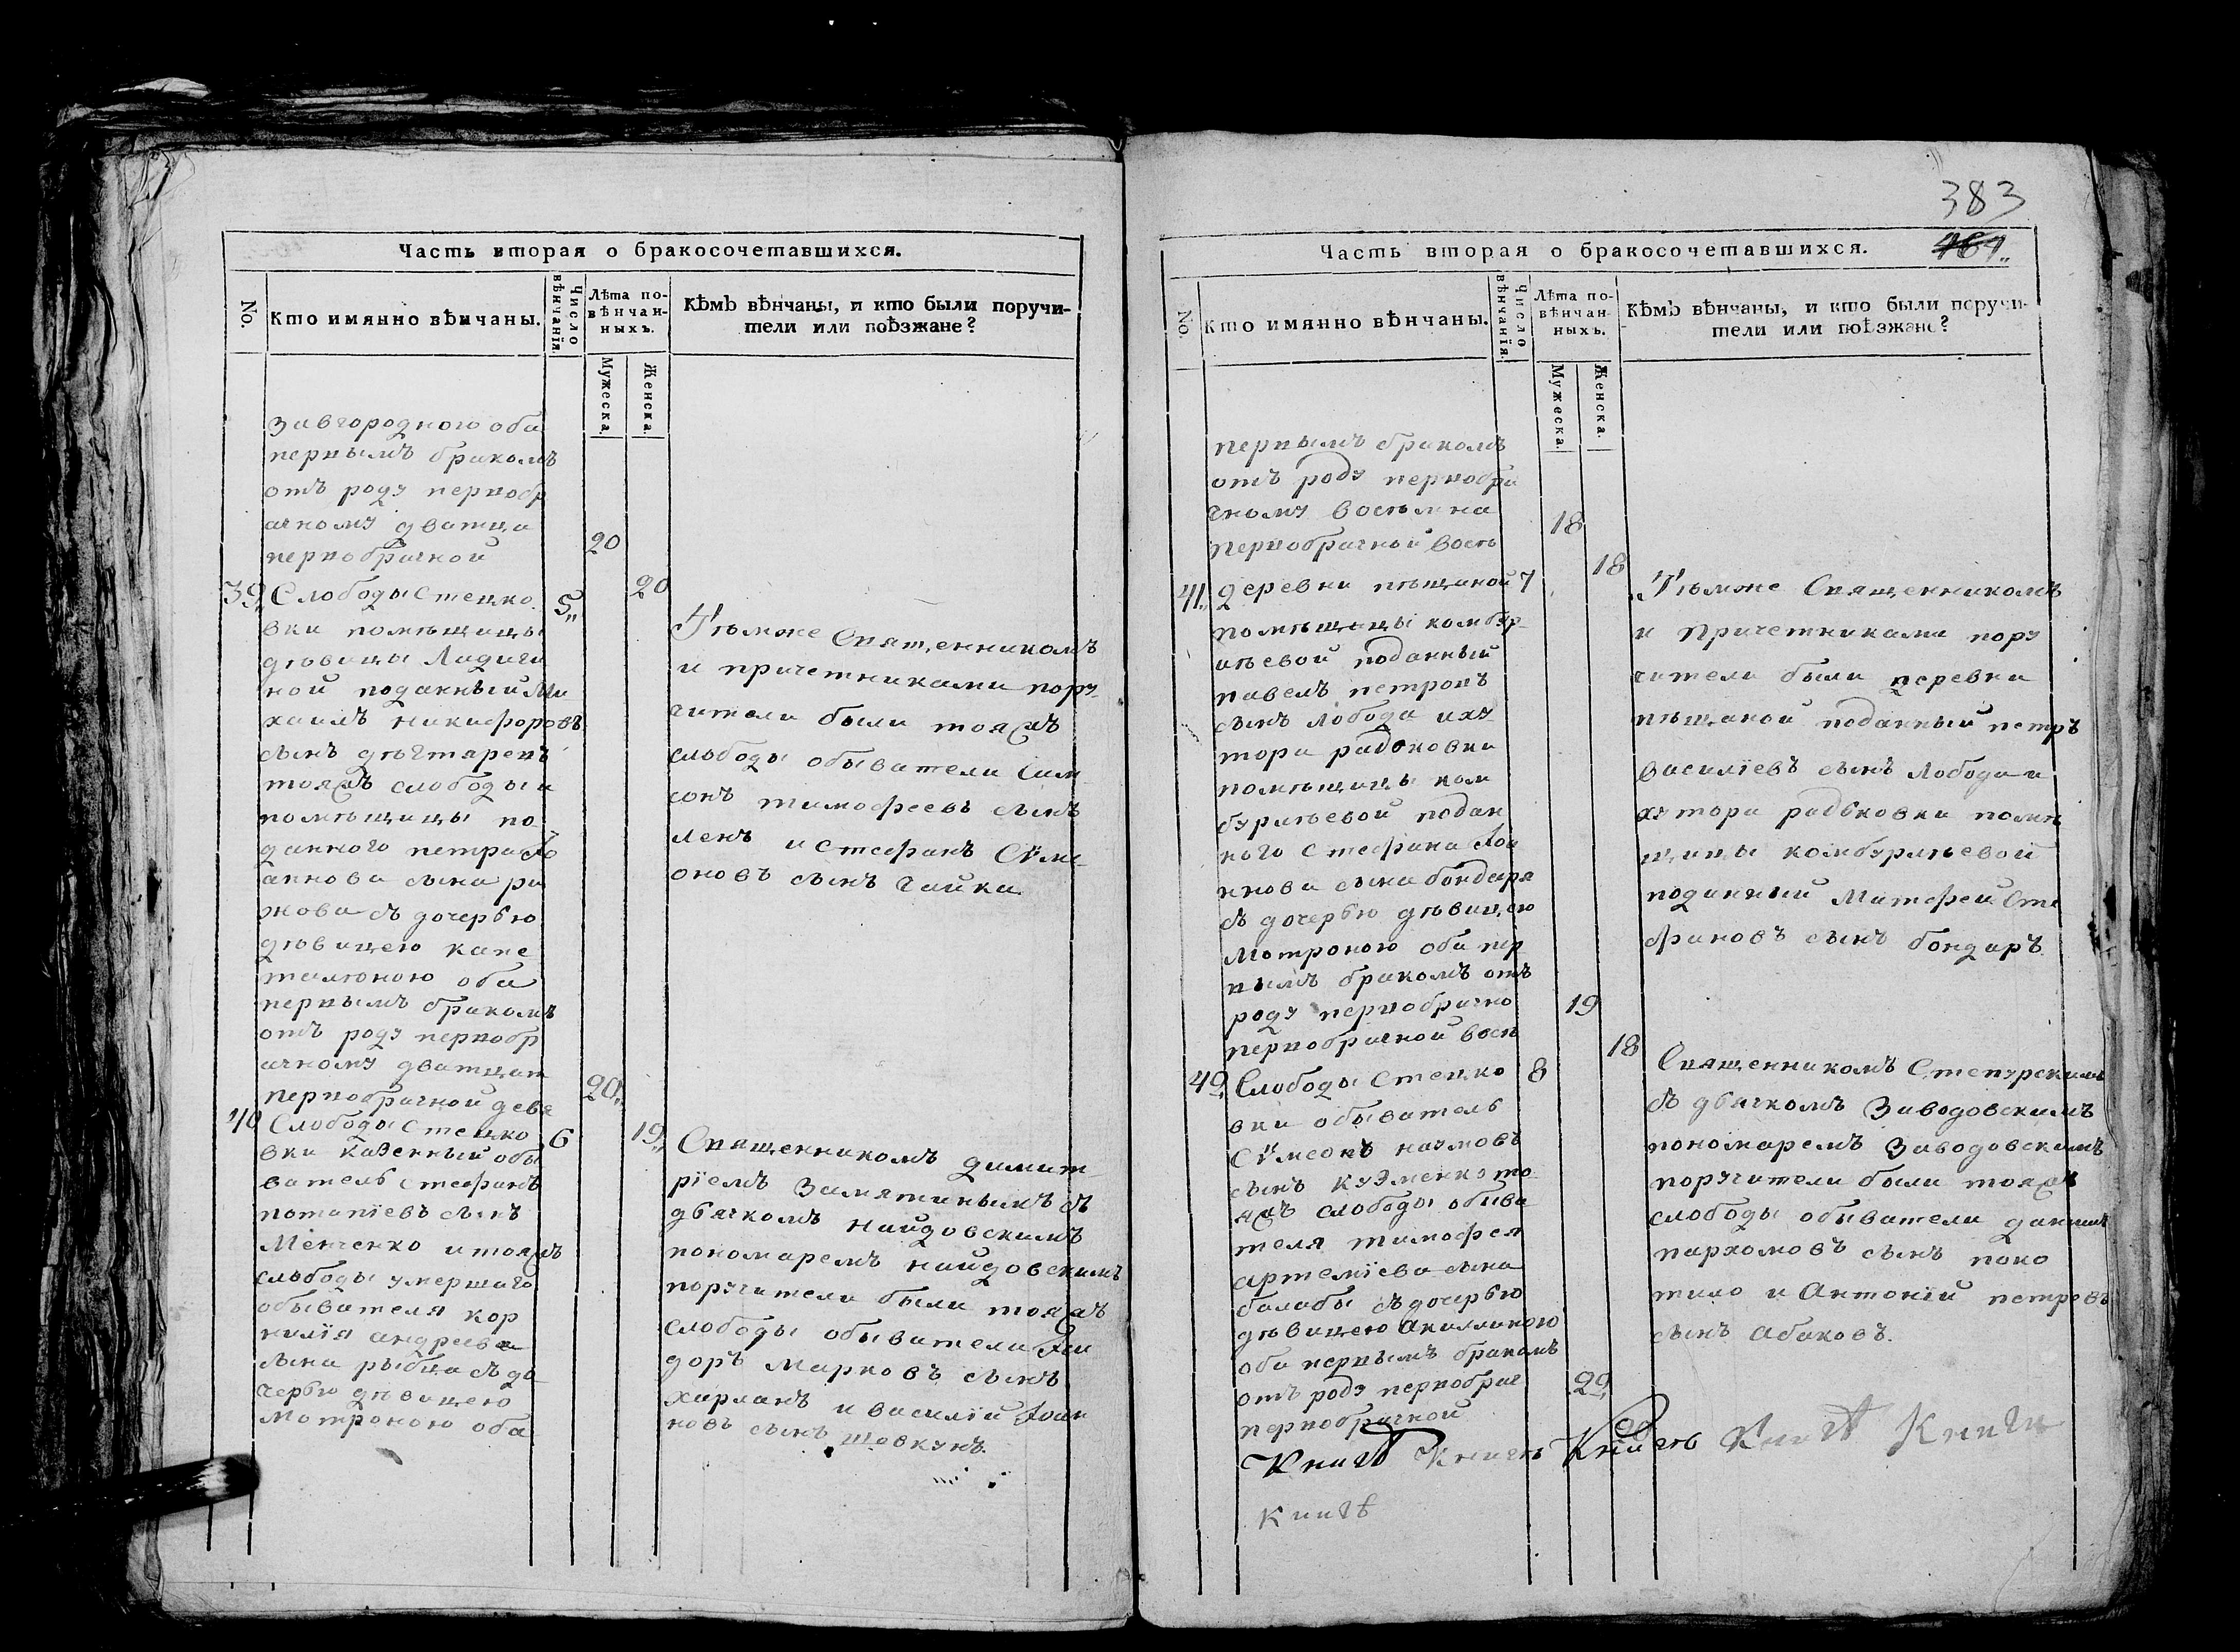 Часть вторая о бракосочетавшихся.
No.
Кто имянно вѣнчаны.
Число вѣнчанія.
Лѣта по-
вѣнчан-
ныхъ.
Мужеска.
Женска.
Кѣмъ вѣнчаны, и кто были поручи-
тели или поѣзжане?
Завгородного оба
первымъ бракомъ
отъ роду первобр
ачному дватца
первобрачной
20
20
39 Слободы Стецко
5
вки помѣщицы
дѣвицы
ной поданный Ми
хаилъ никифоровъ
сынъ дѣгтяренъ
тояжъ слободы и
помѣщицы по
данного петра Іо
аннова сына ри
жова съ дочерью
дѣвицею капе
талоною оба
первымъ бракомъ
отъ роду первобр
ачному дватцат
первобрачной девя
20
19
Тѣмже Священникомъ
и причетниками пору
чители были тояжъ
слободы обыватели Сам
сонъ тимофеевъ сынъ
ленъ и стефанъ Сѵме
оновъ сынъ чайка
40 Слободы Стецко
6
вки казенный обы
ватель стефанъ
потапіевъ сынъ
Менченко и тояжъ
слободы умершаго
обывателя кор
нилія андреева
сына рыбца съ до
черью дѣвицею
Мотроною оба
Священникомъ димит
ріемъ Замятинымъ съ
дьячкомъ найдовскимъ
пономаремъ найдовскимъ
поручители были тояжъ
слободы обыватели
доръ марковъ сынъ
харланъ и василій Іоан
новъ сынъ шовкунъ
383
461
Часть вторая о бракосочетавшихся.
No.
Кто имянно вѣнчаны.
Число вѣнчанія.
Лѣта по-
вѣнчан-
ныхъ.
Мужеска.
Женска.
Кѣмъ вѣнчаны, и кто были поручи-
тели или поѣзжане?
первымъ бракомъ
отъ роду первобра
чному восемна
первобрачной восе
18
18
41 деревни пѣщаной
7
помѣщицы комбур
лѣевой поданный
павелъ петровъ
сынъ лобода и ху
тора радковки
помѣщицы ком
бурлѣевой подан
ного Стефана Іоа
ннова сына бондаря
съ дочерью дѣвицею
Мотроною оба пер
вымъ бракомъ отъ
роду первобрачно
первобрачной восе
19
18
Тѣмже Священникомъ
и причетниками пору
чители были деревни
пѣщаной поданный петръ
василіевъ сынъ лобода и
хутора радковки помѣ
щицы комбурлѣевой
поданный Матфей Сте
фановъ сынъ бондаръ
42 Слободы Стецко
8
вки обыватель
Сѵмеонъ наумовъ
сынъ кузменко то
яжъ слободы обыва
теля тимофея
артеміева сына
балабы съ дочерью
дѣвицею Акилиною
оба первымъ бракомъ
отъ роду первобрач
первобрачной
29
20
Священникомъ Степурскимъ
съ дьячкомъ Заводовскимъ
пономаремъ Заводовскимъ
поручители были тояжъ
слободы обыватели данила
пархомовъ сынъ поко
тило и Антоній петровъ
сынъ Абаковъ.
Книгѣ Книгѣ Книгѣ Книгѣ Книги
Книгѣ